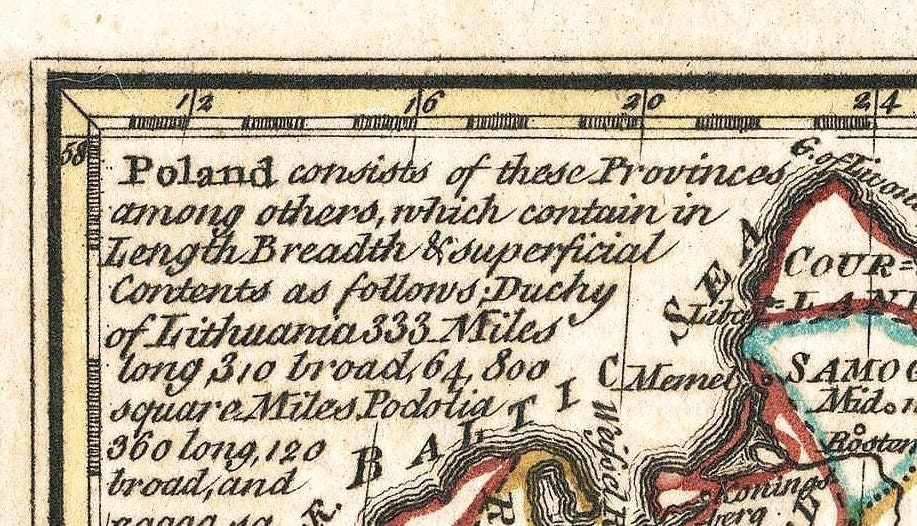 12 16 20 24
58
Poland consists of these Provinces
among others, which contain in
Length Breadth & superficial
Contents as follows; Duchy
of Lithuania 333 Miles
long, 310 broad, 64,800
square Miles Podolia
360 long, 120
broad, and
G. of Livon
BALTIC SEA
COUR=
LAN
Liba
SAMOG
Memel
Mid
Rosten
Konings
berg